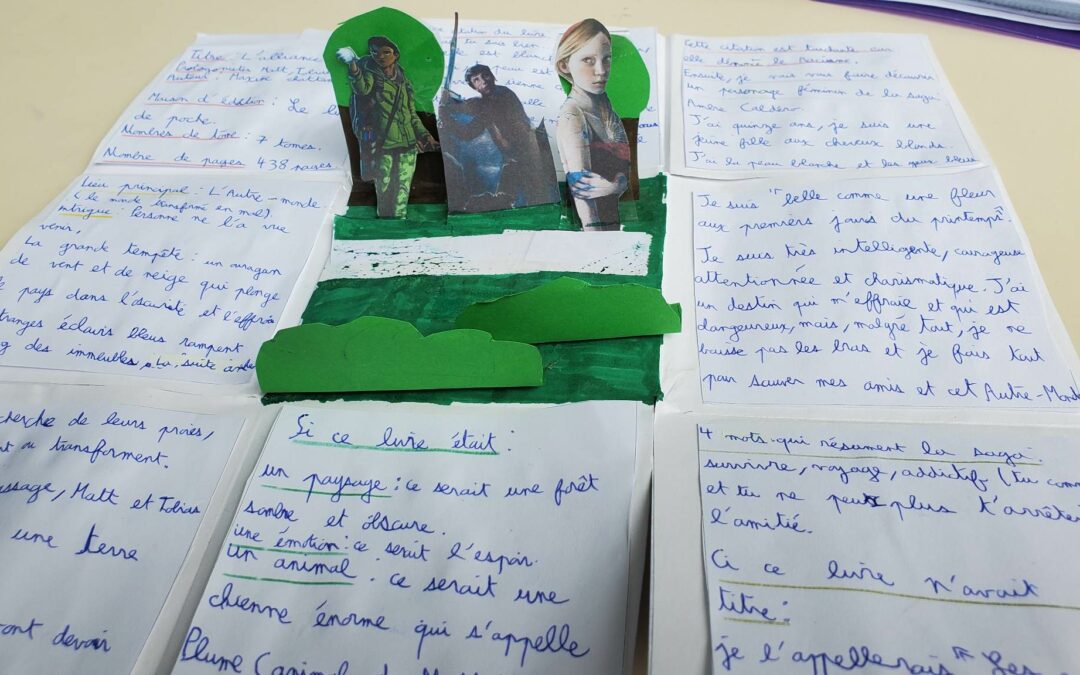 Titre : L'alliance
Matt,
Auteur : Maxime
Maison d'édition : Le
de poche.
Nombres de tome : 7 tomes.
Nombre de pages 438 pages
citation du livre
tu suis bien
est blanche
peau est
Cette citation est touchante car
elle démontre le
Ensuite, je vais vous faire découvrir
un personnage féminin de la saga.
Ambre Caldero.
J'ai quinze ans, je suis une
jeune fille aux cheveux blonds.
J'ai la peau blanche et les yeux bleus
Lieu principal : L'Autre-monde.
(le monde transformé en mal).
intrigue : Personne ne l'a vue
venir,
La grande tempête : un ouragan
de vent et de neige qui plonge
pays dans l'oscurité et l'effroi
tranges éclairs bleus rampent
g des immeubles,
Je suis "belle comme une fleur
aux premiers jours du printemps".
Je suis très intelligente, courageuse
attentionnée et charismatique. J'ai
un destin qui m'effraie et qui est
dangeureux, mais, malgré tout, je ne
baisse pas les bras et je fais tout
pour sauver mes amis et cet Autre-Monde
cherche de leurs proies,
nt ou transforment.
ssage, Matt et Tobias
une terre
ont devoir
Si ce livre était :
un paysage : ce serait une forêt
sombre et oscure.
une émotion : ce serait l'espoir.
un animal : ce serait une
chienne énorme qui s'appelle
Plume (animal de
4 mots qui résument la saga :
survivre, voyage, addictif (tu com
et tu ne peux plus t'arrêter
l'amitié.
Ci ce livre n'avait
titre :
je l'appellerais "Les